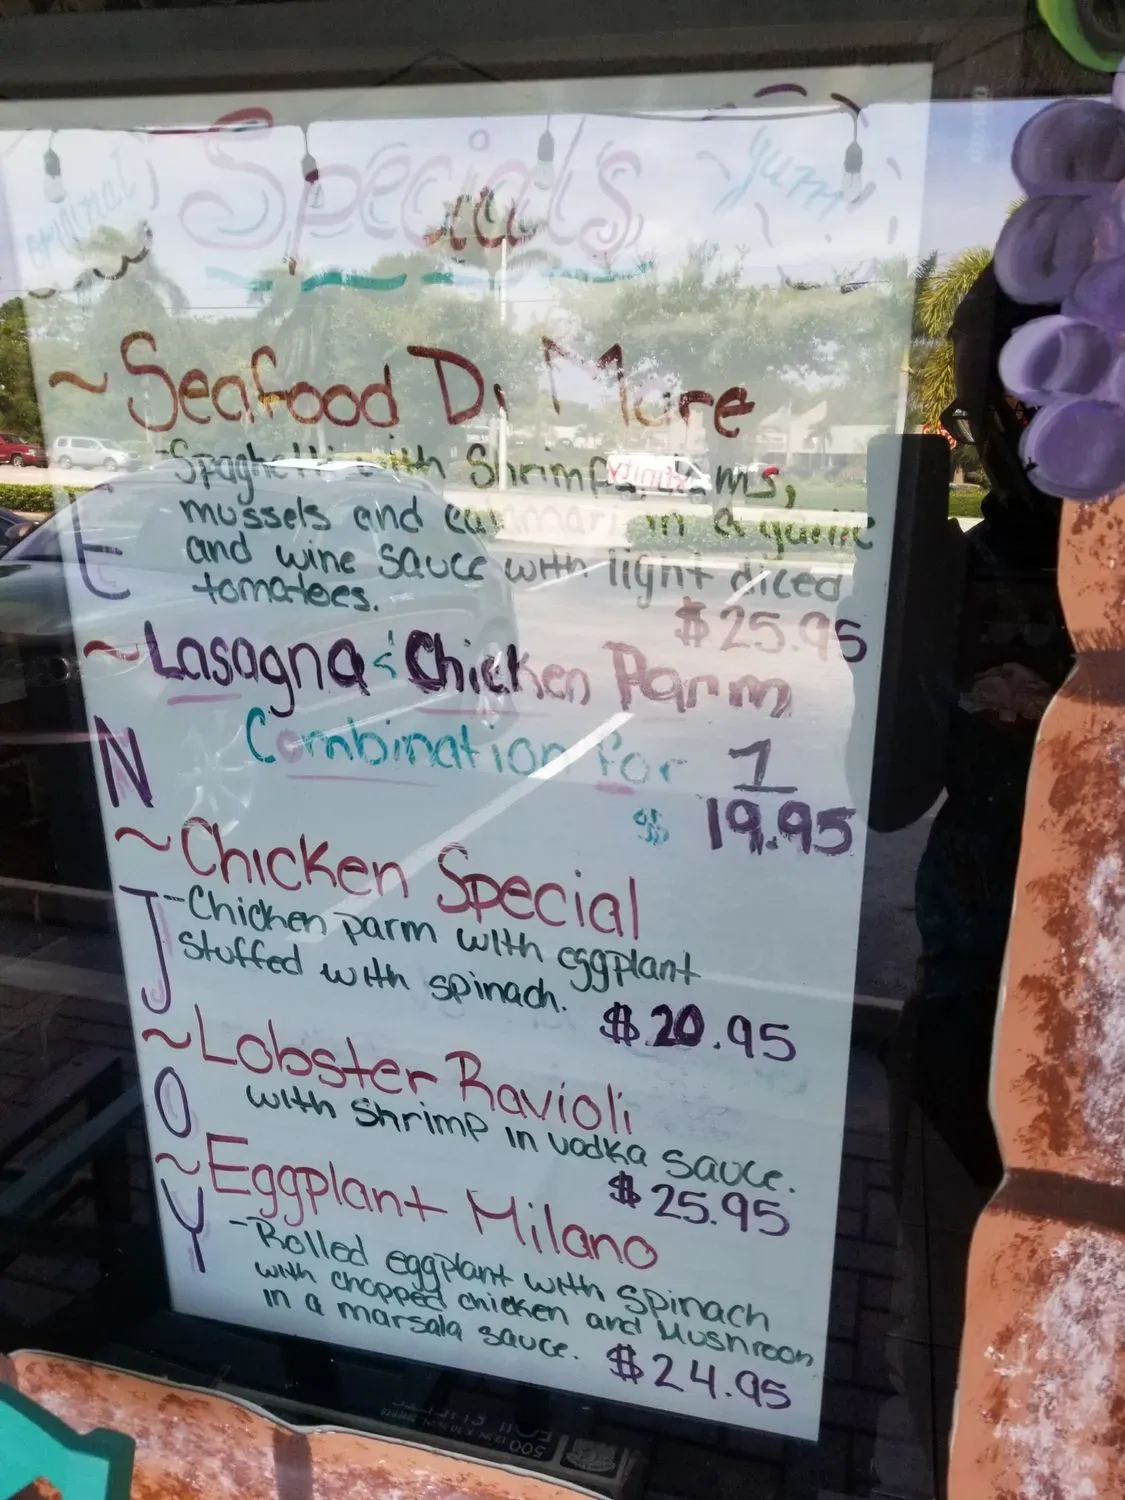 Specials
yum
~Seafood Di Mare
-Spaghetti with shrimp, clams,
mussels and calamari in a garlic
and wine sauce with light diced
tomatoes.
$25.95
~Lasagna & Chicken Parm
Combination for 1
$ 19.95
~Chicken Special
-Chicken parm with eggplant
stuffed with spinach.
$20.95
~Lobster Ravioli
with shrimp in vodka sauce.
$25.95
~Eggplant Milano
-Rolled eggplant with spinach
with chopped chicken and mushroom
in a marsala sauce.
$24.95
E
N
J
O
Y